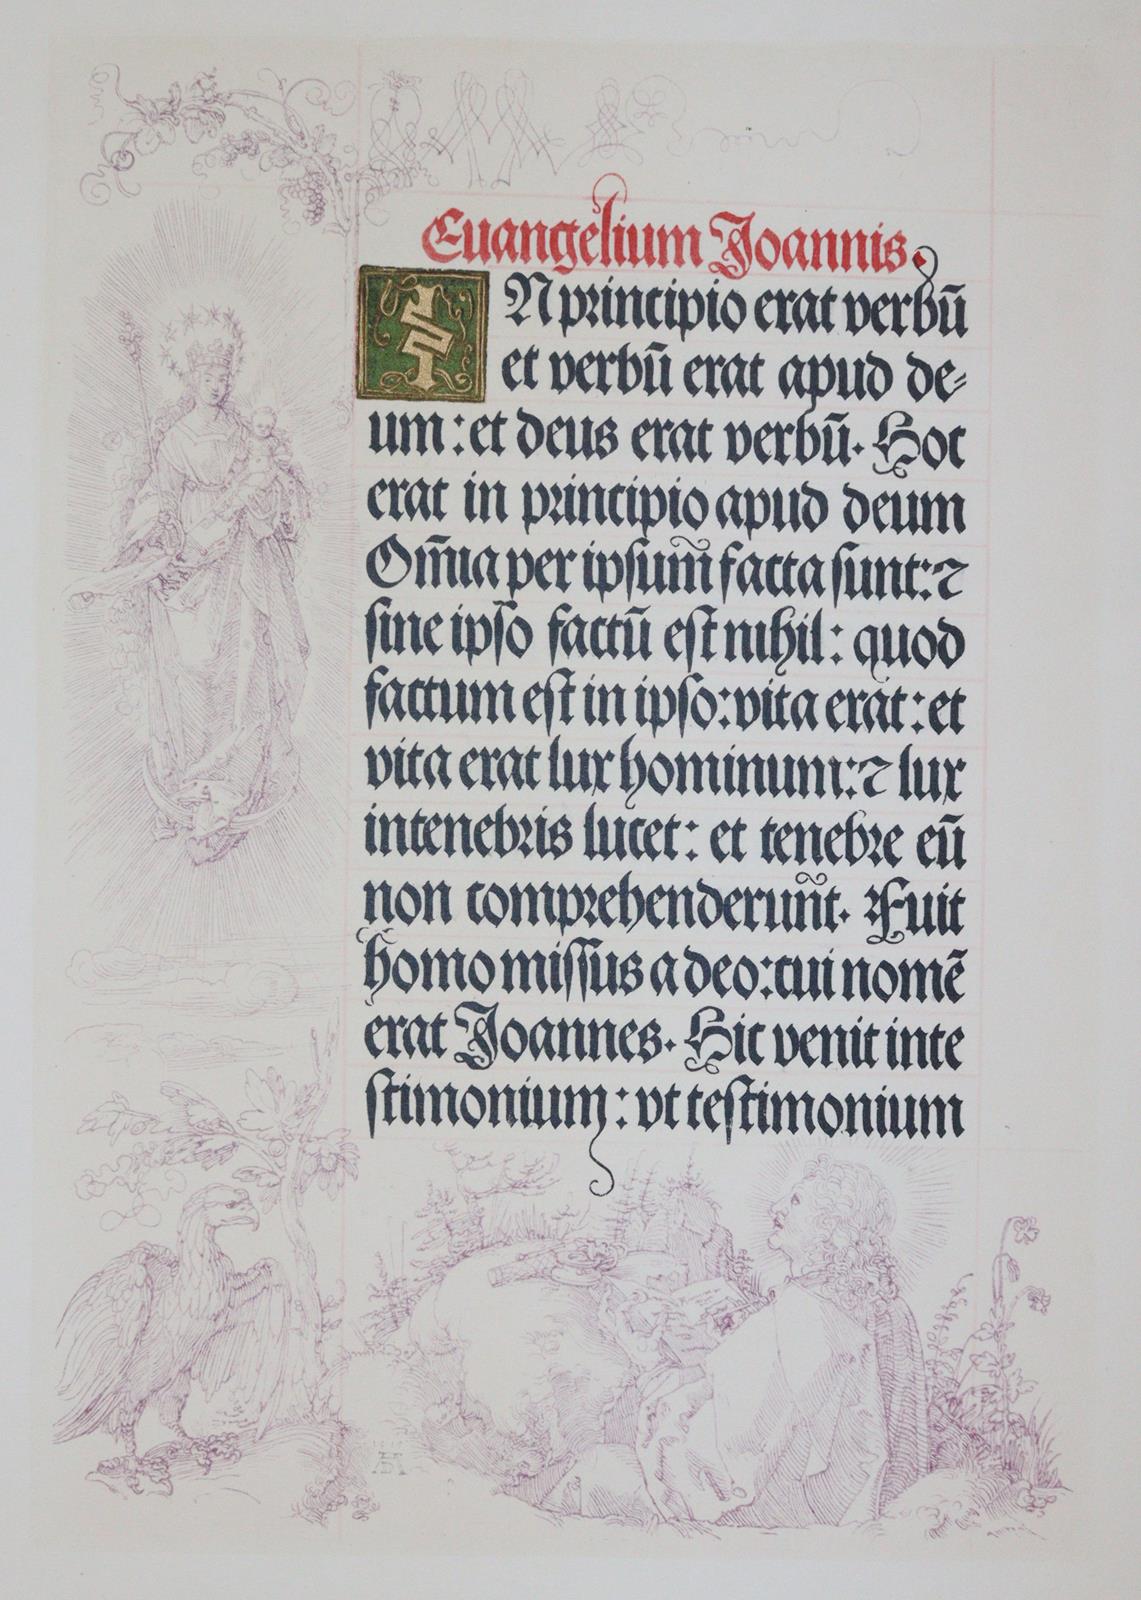 Euangelium Joannis.
IN principio erat verbū
et verbū erat apud de⸗
um: et deus erat verbū. Hoc
erat in principio apud deum
Om̄ia per ipsum̃ facta sunt: ⁊
sine ipso factū est nihil: quod
factum est in ipso: vita erat: et
vita erat lux hominum: ⁊ lux
intenebris lucet: et tenebre eū
non comprehenderun̄t. Fuit
homo missus a deo: cui nomē
erat Joannes. Hic venit inte
stimonium: vt testimonium